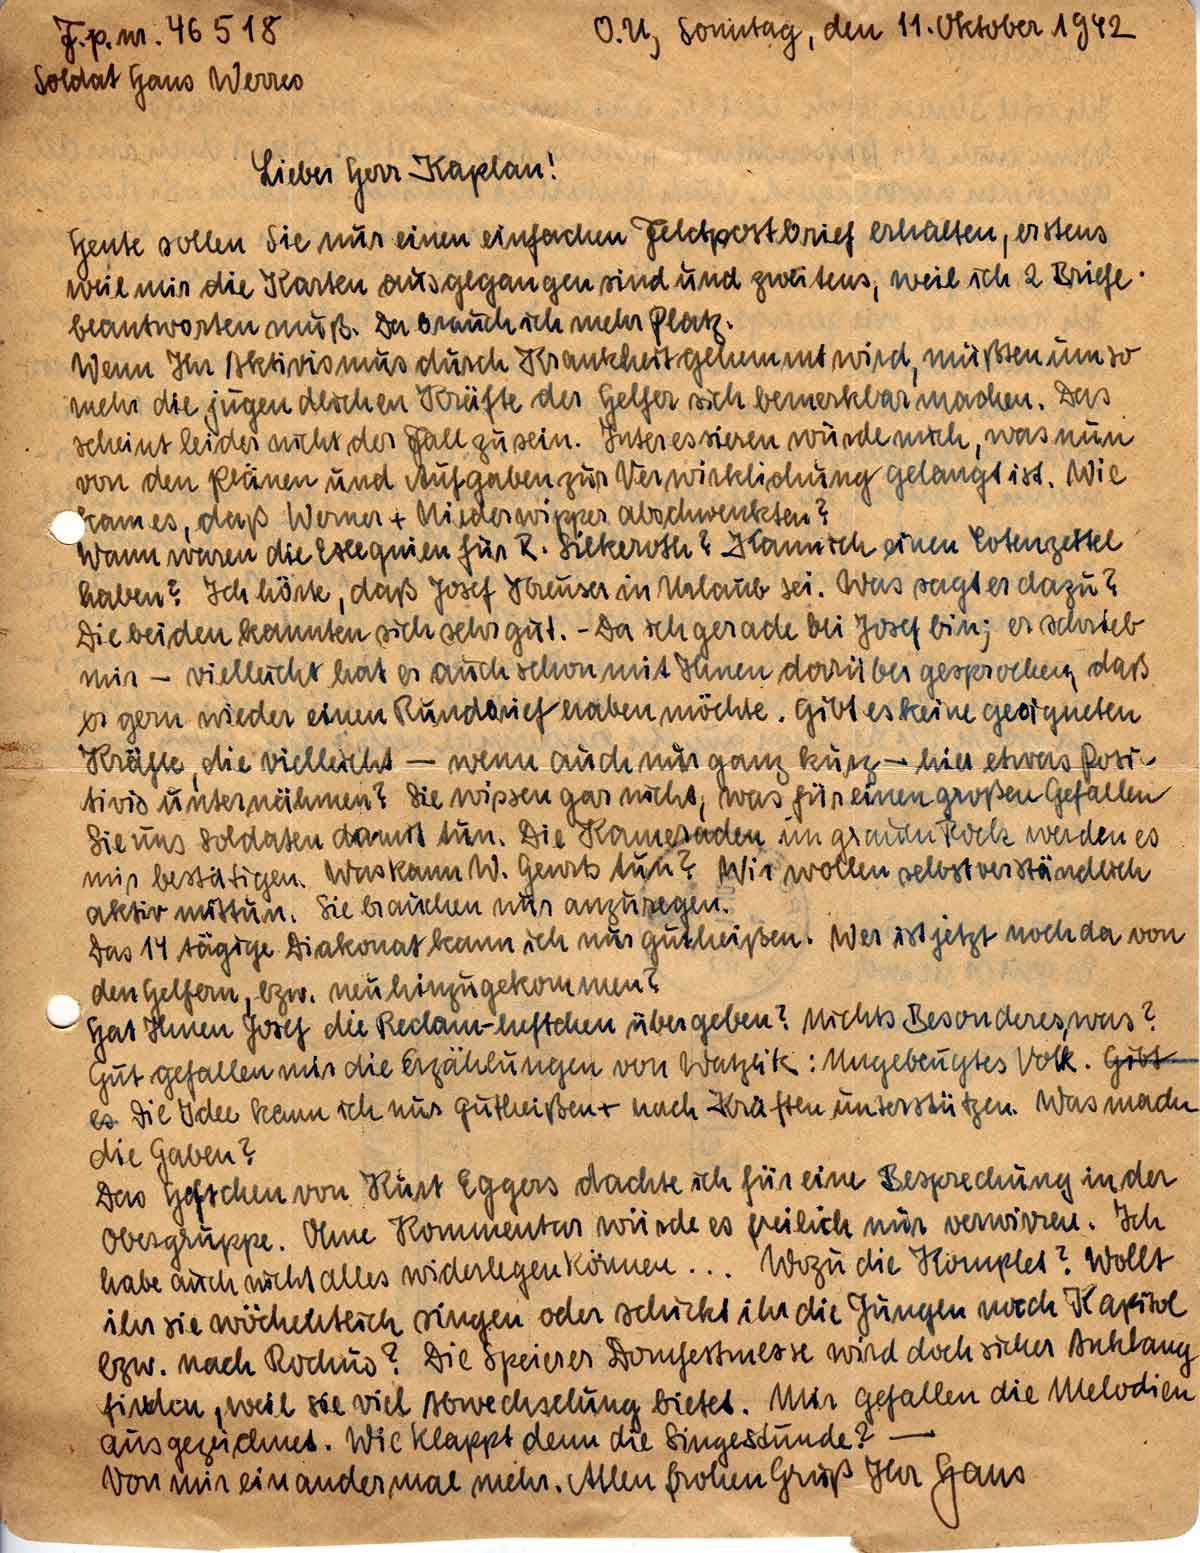 F.p.nr. 46 518
O.U, Sonntag, den 11. Oktober 1942
Soldat Hans Werres
Lieber Herr Kaplan!
Heute sollen Sie nur einen einfachen Feldpostbrief erhalten, erstens
weil mir die Karten ausgegangen sind und zweitens, weil ich 2 Briefe
beantworten muß. Da brauch ich mehr Platz.
Wenn Ihr Aktivismus durch Krankheit gehemmt wird, müßten umso
mehr die jugendlichen Kräfte der Helfer sich bemerkbar machen. Das
scheint leider nicht der Fall zu sein. Interessieren würde mich, was nun
von den Plänen und Aufgaben zur Verwirklichung gelangt ist. Wie
kam es, daß Werner + Niederwipper abschwenkten?
Wann waren die Exequien für R. Silkeroth? Kann ich einen Totenzettel
haben? Ich hörte, daß Josef Kreuser in Urlaub sei. Was sagt er dazu?
Die beiden kannten sich sehr gut. - Da ich gerade bei Josef bin; er schrieb
mir - vielleicht hat er auch schon mit Ihnen darüber gesprochen, daß
er gern wieder einen Rundbrief haben möchte. Gibt es keine geeigneten
Kräfte, die vielleicht - wenn auch nur ganz kurz - hier etwas Posi-
tives unternähmen? Sie wissen gar nicht, was für einen großen Gefallen
Sie uns Soldaten damit tun. Die Kameraden im grauen Rock werden es
mir bestätigen. Was kann W. Geurts tun? Wir wollen selbstverständlich
aktiv mittun. Sie brauchen nur anzuregen.
Das 14 tägige Diakonat kann ich nur gutheißen. Wer ist jetzt noch da von
den Helfern, bzw. neu hinzugekommen?
Hat Ihnen Josef die Reclam-heftchen übergeben? Nichts Besonderes, was?
Gut gefallen mir die Erzählungen von Watzlik: Ungebeugtes Volk. Gibt
es Die Idee kann ich nur gutheißen + nach Kräften unterstützen. Was machen
die Gaben?
Das Heftchen von Kurt Eggers dachte ich für eine Besprechung in der
Obergruppe. Ohne Kommentar würde es freilich nur verwirren. Ich
habe auch nicht alles widerlegen können... Wozu die Komplet? Wollt
ihr sie wöchentlich singen oder schickt ihr die Jungen nach Kapitol
bzw. nach Rochus? Die Speierer Domfestmesse wird doch sicher Anklang
finden, weil sie viel Abwechselung bietet. Mir gefallen die Melodien
ausgezeichnet. Wie klappt denn die Singestunde? -
Von mir ein andermal mehr. Allen frohen Gruß Ihr Hans